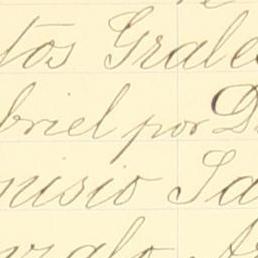 tos Grale
briel por D
nisio Sa
nzalo